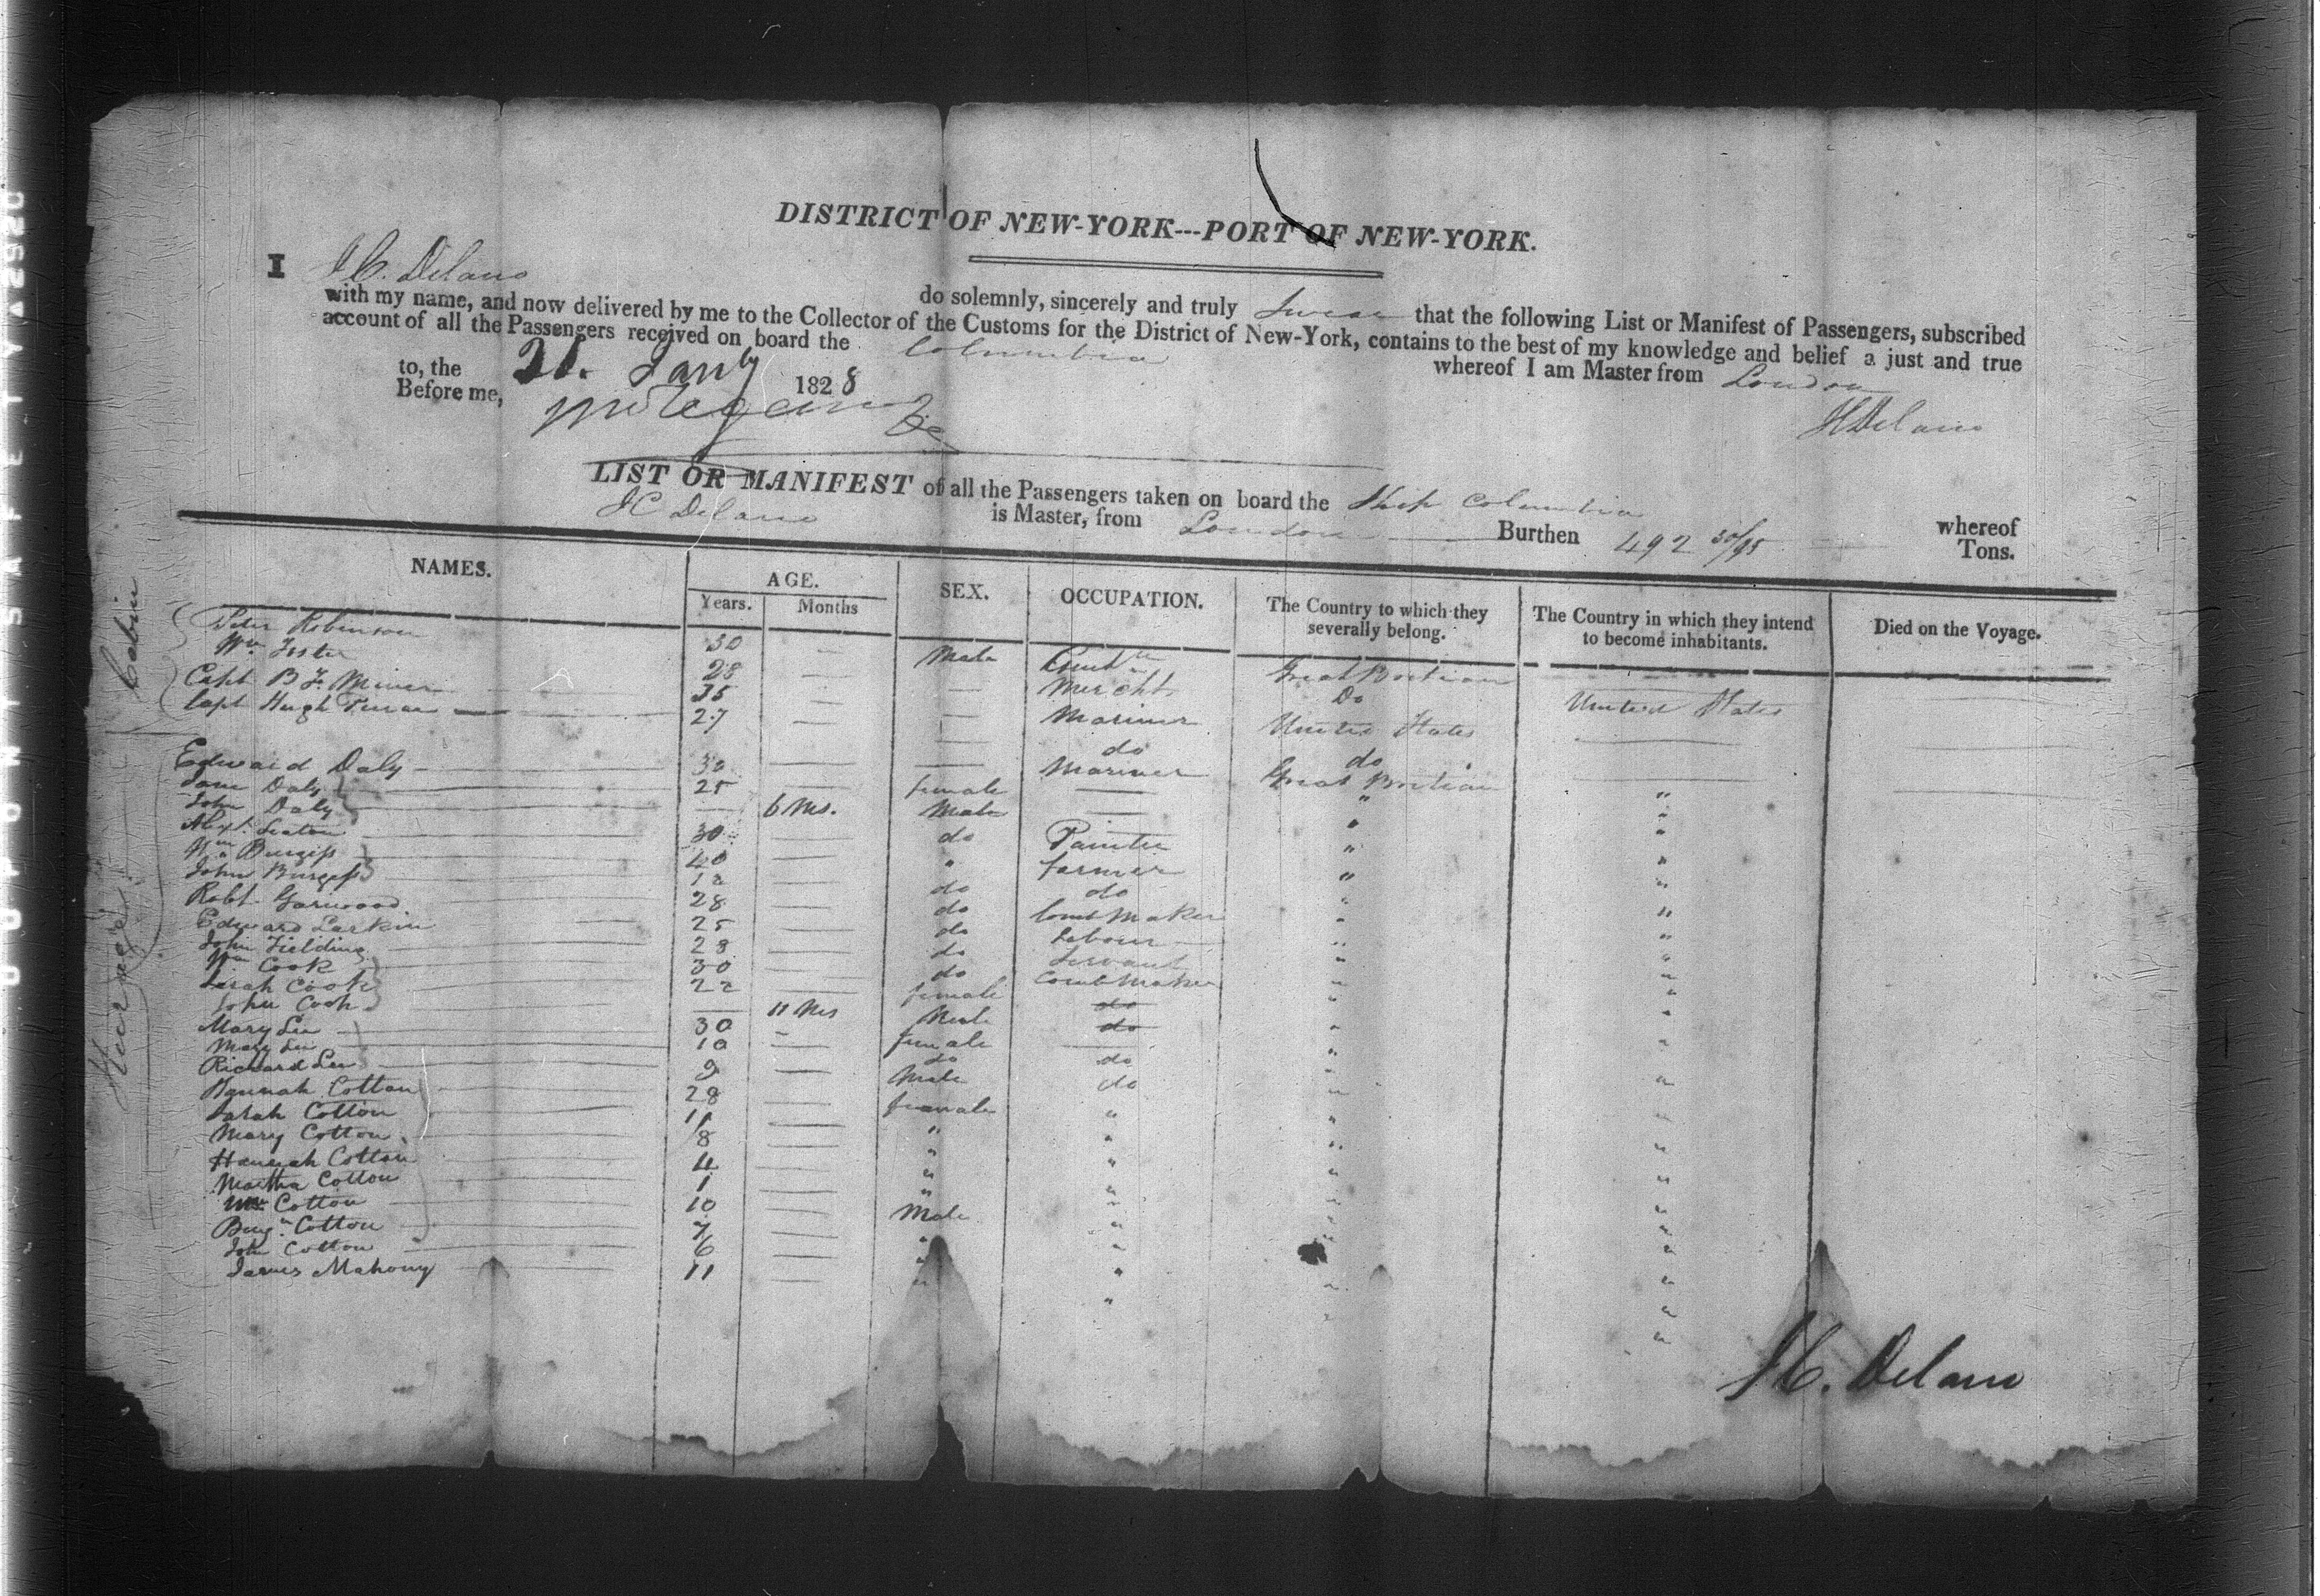 DISTRICT OF NEW-YORK---PORT OF NEW-YORK.
I J C. Delano do solemnly, sincerely and truly Swear that the following List or Manifest of Passengers, subscribed
with my name, and now delivered by me to the Collector of the Customs for the District of New-York, contains to the best of my knowledge and belief a just and true
account of all the Passengers received on board the Columbia whereof I am Master from London
to, the 31. Jany 1828
Before me,
J C Delano
LIST OR MANIFEST of all the Passengers taken on board the Ship Columbia whereof
J C Delano is Master, from London Burthen 492 30/95 Tons.
NAMES. AGE. Years. Months SEX. OCCUPATION. The Country to which they severally belong. The Country in which they intend to become inhabitants. Died on the Voyage.
Cabin
Peter Robinson 30 Male Great Britian
Wm Foster 28 Mercht Do United States
Capt B F. Minor 35 Mariner United States
Capt Hugh 27 do do
Steerage
Edward Daly 30 Mariner Great Britian "
Jane Daly 25 female " "
John Daly 6 Ms. Male " "
Alexr. Seaton 30 do Painter " "
Wm Burgess 40 " farmer " "
John Burgess 12 do do " "
Robt. Garwood 28 do Comb Maker " "
Edward Larkin 25 do Labour " "
John Fielding 28 do Servant " "
Wm Cook 30 do Comb Maker " "
Sarah Cook 22 female do " "
John Cook 11 Ms Male do " "
Mary Lee 30 female " "
Mary Lee 10 do do " "
Richard Lee 9 Male do " "
Hannah Cotton 28 female " " "
Sarah Cotton 11 " " " "
Mary Cotton 8 " " " "
Hannah Cotton 4 " " " "
Martha Cotton 1 " " " "
Wm Cotton 10 Male " " "
Benjn. Cotton 7 " " " "
John Cotton 6 " " " "
James Mahony 11 " " " "
J C. Delano